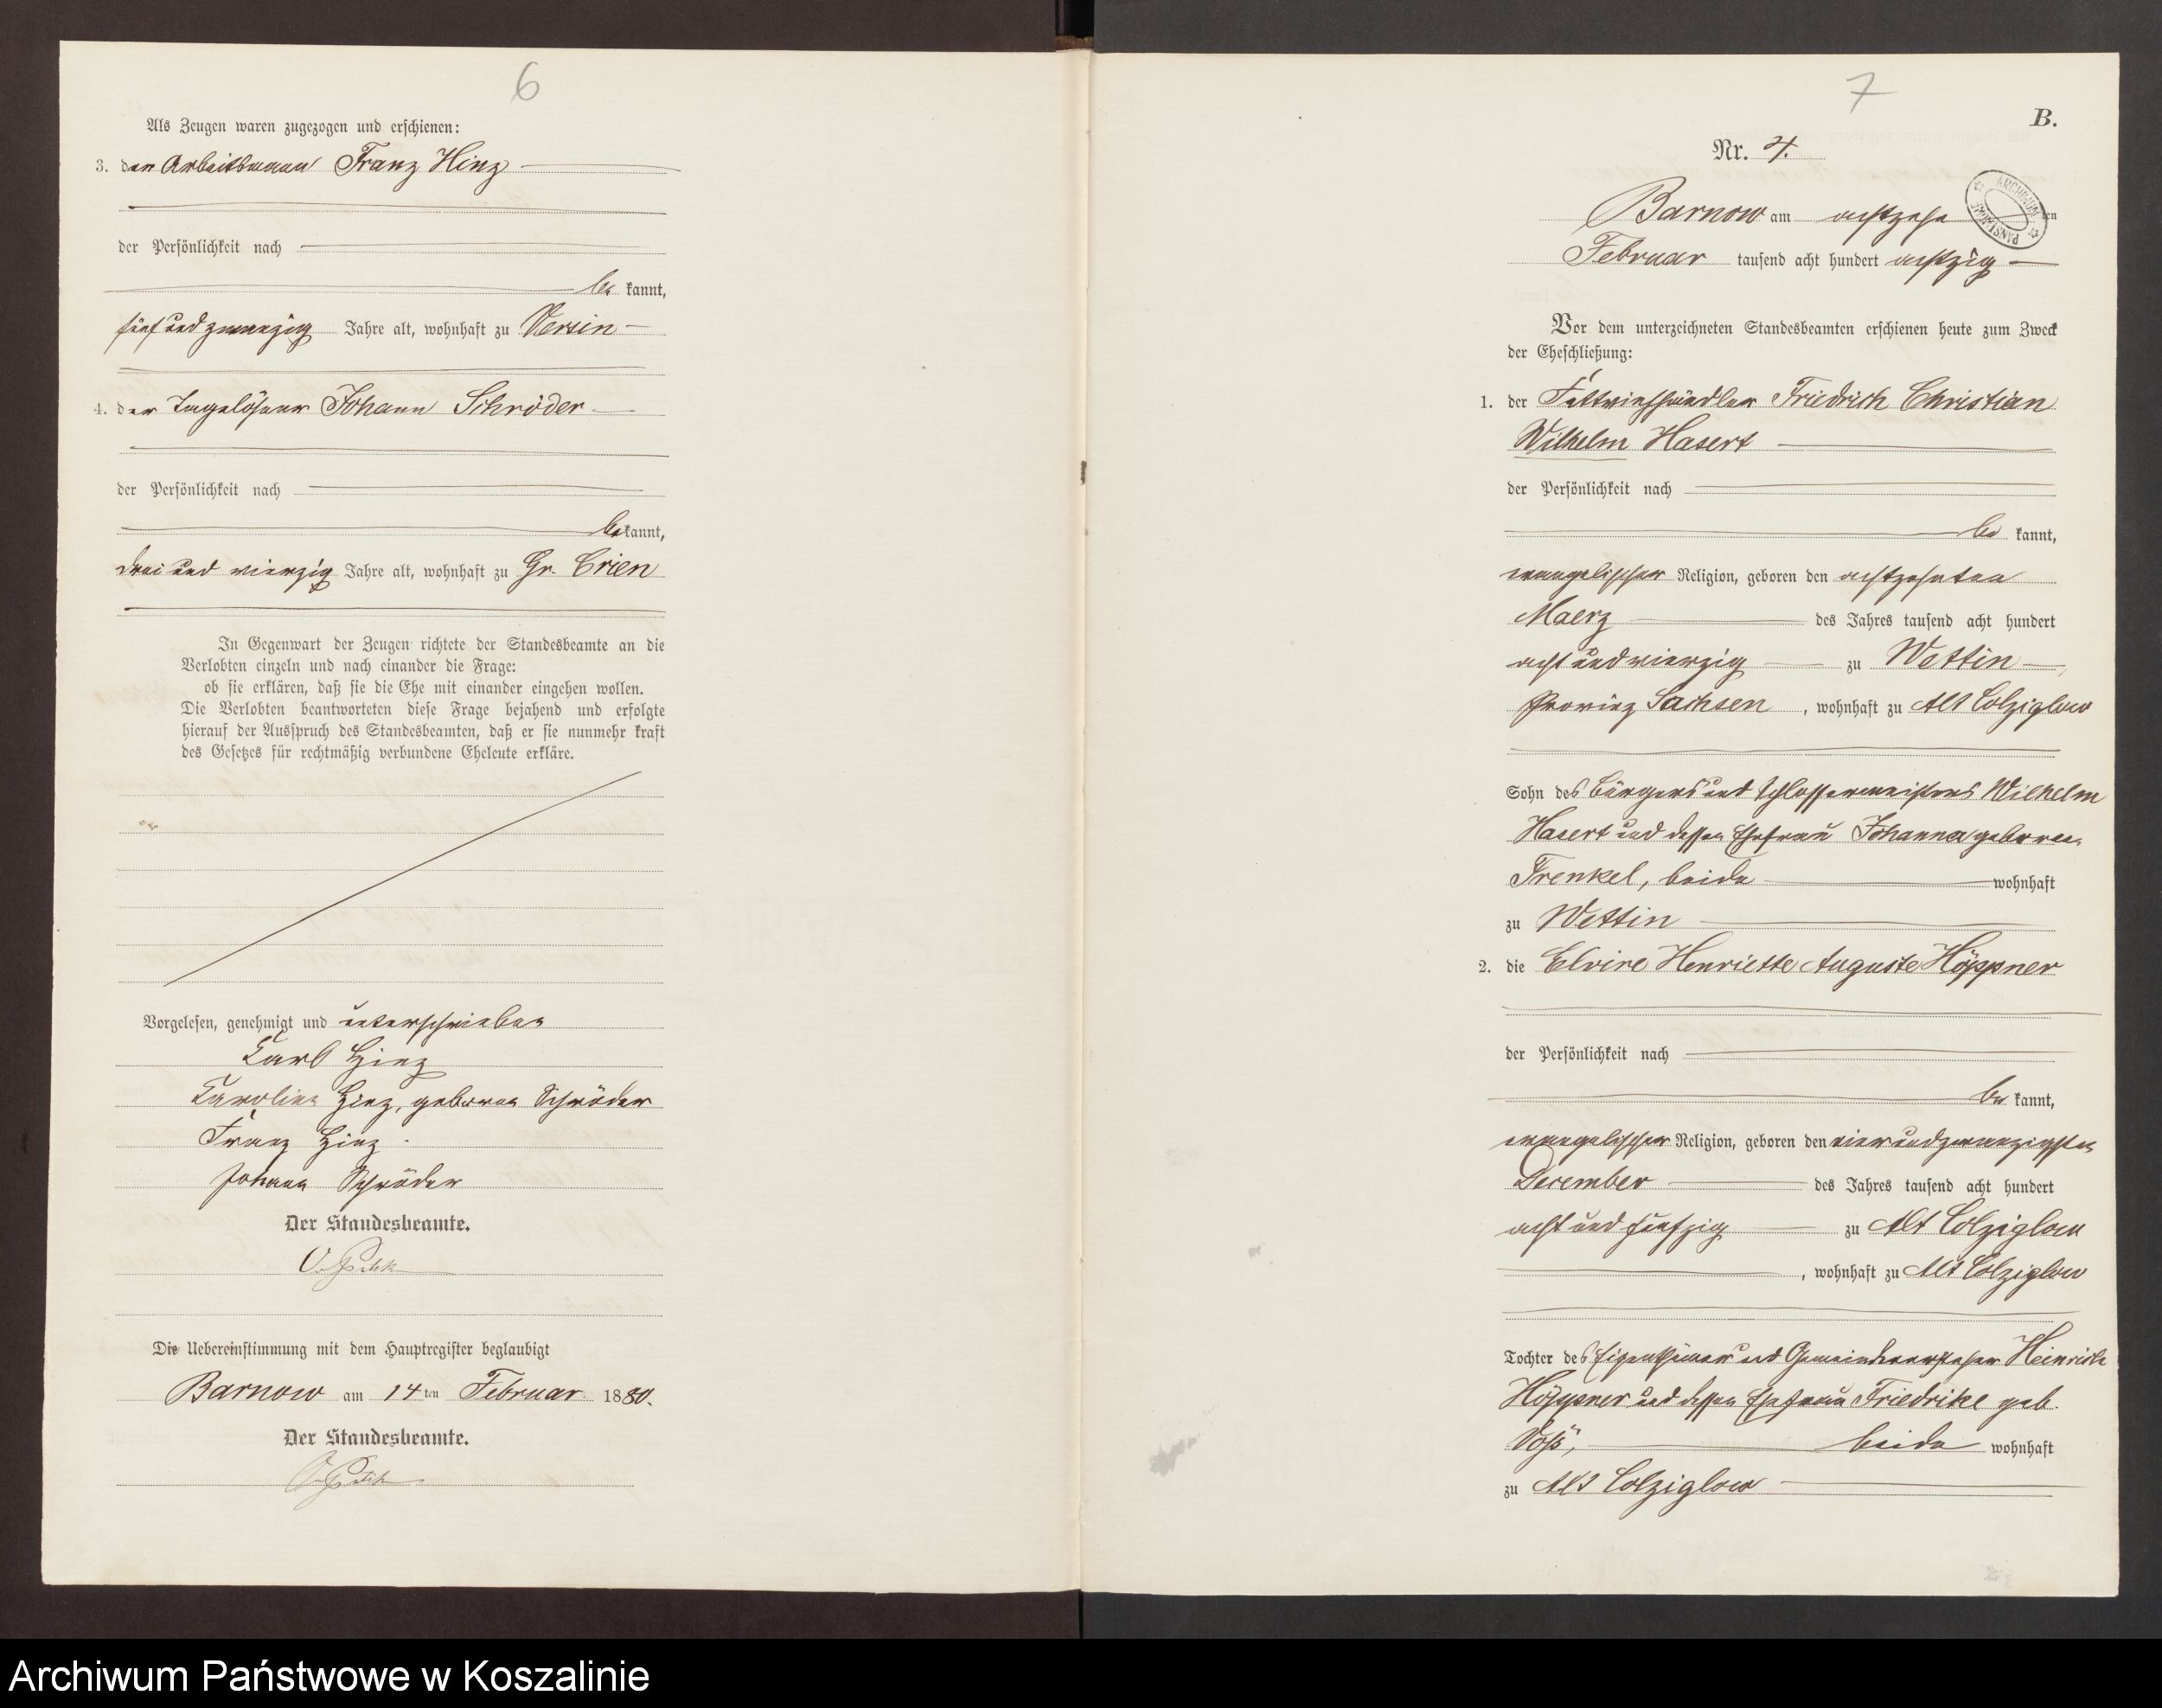 6
Als Zeugen waren zugezogen und erschienen:
3. der Arbeitsmann Franz Hinz
der Persönlichkeit nach
be kannt,
fünf und zwanzig Jahre alt, wohnhaft zu Versin
4. der Tagelöhner Johann Schröder
der Persönlichkeit nach
be kannt,
drei und vierzig Jahre alt, wohnhaft zu Gr. Crien
In Gegenwart der Zeugen richtete der Standesbeamte an die
Verlobten einzeln und nach einander die Frage:
ob sie erklären, daß sie die Ehe mit einander eingehen wollen.
Die Verlobten beantworteten diese Frage bejahend und erfolgte
hierauf der Ausspruch des Standesbeamten, daß er sie nunmehr kraft
des Gesetzes für rechtmäßig verbundene Eheleute erkläre.
Vorgelesen, genehmigt und unterschrieben
Carl Hinz
Caroline Hinz, geborene Schröder
Franz Hinz
Johann Schröder
Der Standesbeamte.
Die Uebereinstimmung mit dem Hauptregister beglaubigt
Barnow am 14 ten Februar 1880.
Der Standesbeamte.
7
B.
Nr. 4.
ARCHIWUM PAŃSTWOWE
Barnow am achtzehn ten
Februar tausend acht hundert achtzig
Vor dem unterzeichneten Standesbeamten erschienen heute zum Zweck
der Eheschließung:
1. der Fettviehhändler Friedrich Christian
Wilhelm Hasert
der Persönlichkeit nach
be kannt,
evangelischer Religion, geboren den achtzehnten
Maerz des Jahres tausend acht hundert
acht und vierzig zu Wettin
Provinz Sachsen, wohnhaft zu Alt Colziglow
Sohn des Bürgers und Schlossermeisters Wilhelm
Hasert und dessen Ehefrau Johanna geborene
Frenkel, beide wohnhaft
zu Wettin
2. die Elvire Henriette Auguste Höppner
der Persönlichkeit nach
be kannt,
evangelischer Religion, geboren den vier und zwanzigsten
December des Jahres tausend acht hundert
acht und fünfzig zu Alt Colziglow
, wohnhaft zu Alt Colziglow
Tochter des Eigenthümer und Gemeindevorsteher Heinrich
Höppner und dessen Ehefrau Friedrike geb.
Voß, beide wohnhaft
zu Alt Colziglow
Archiwum Państwowe w Koszalinie